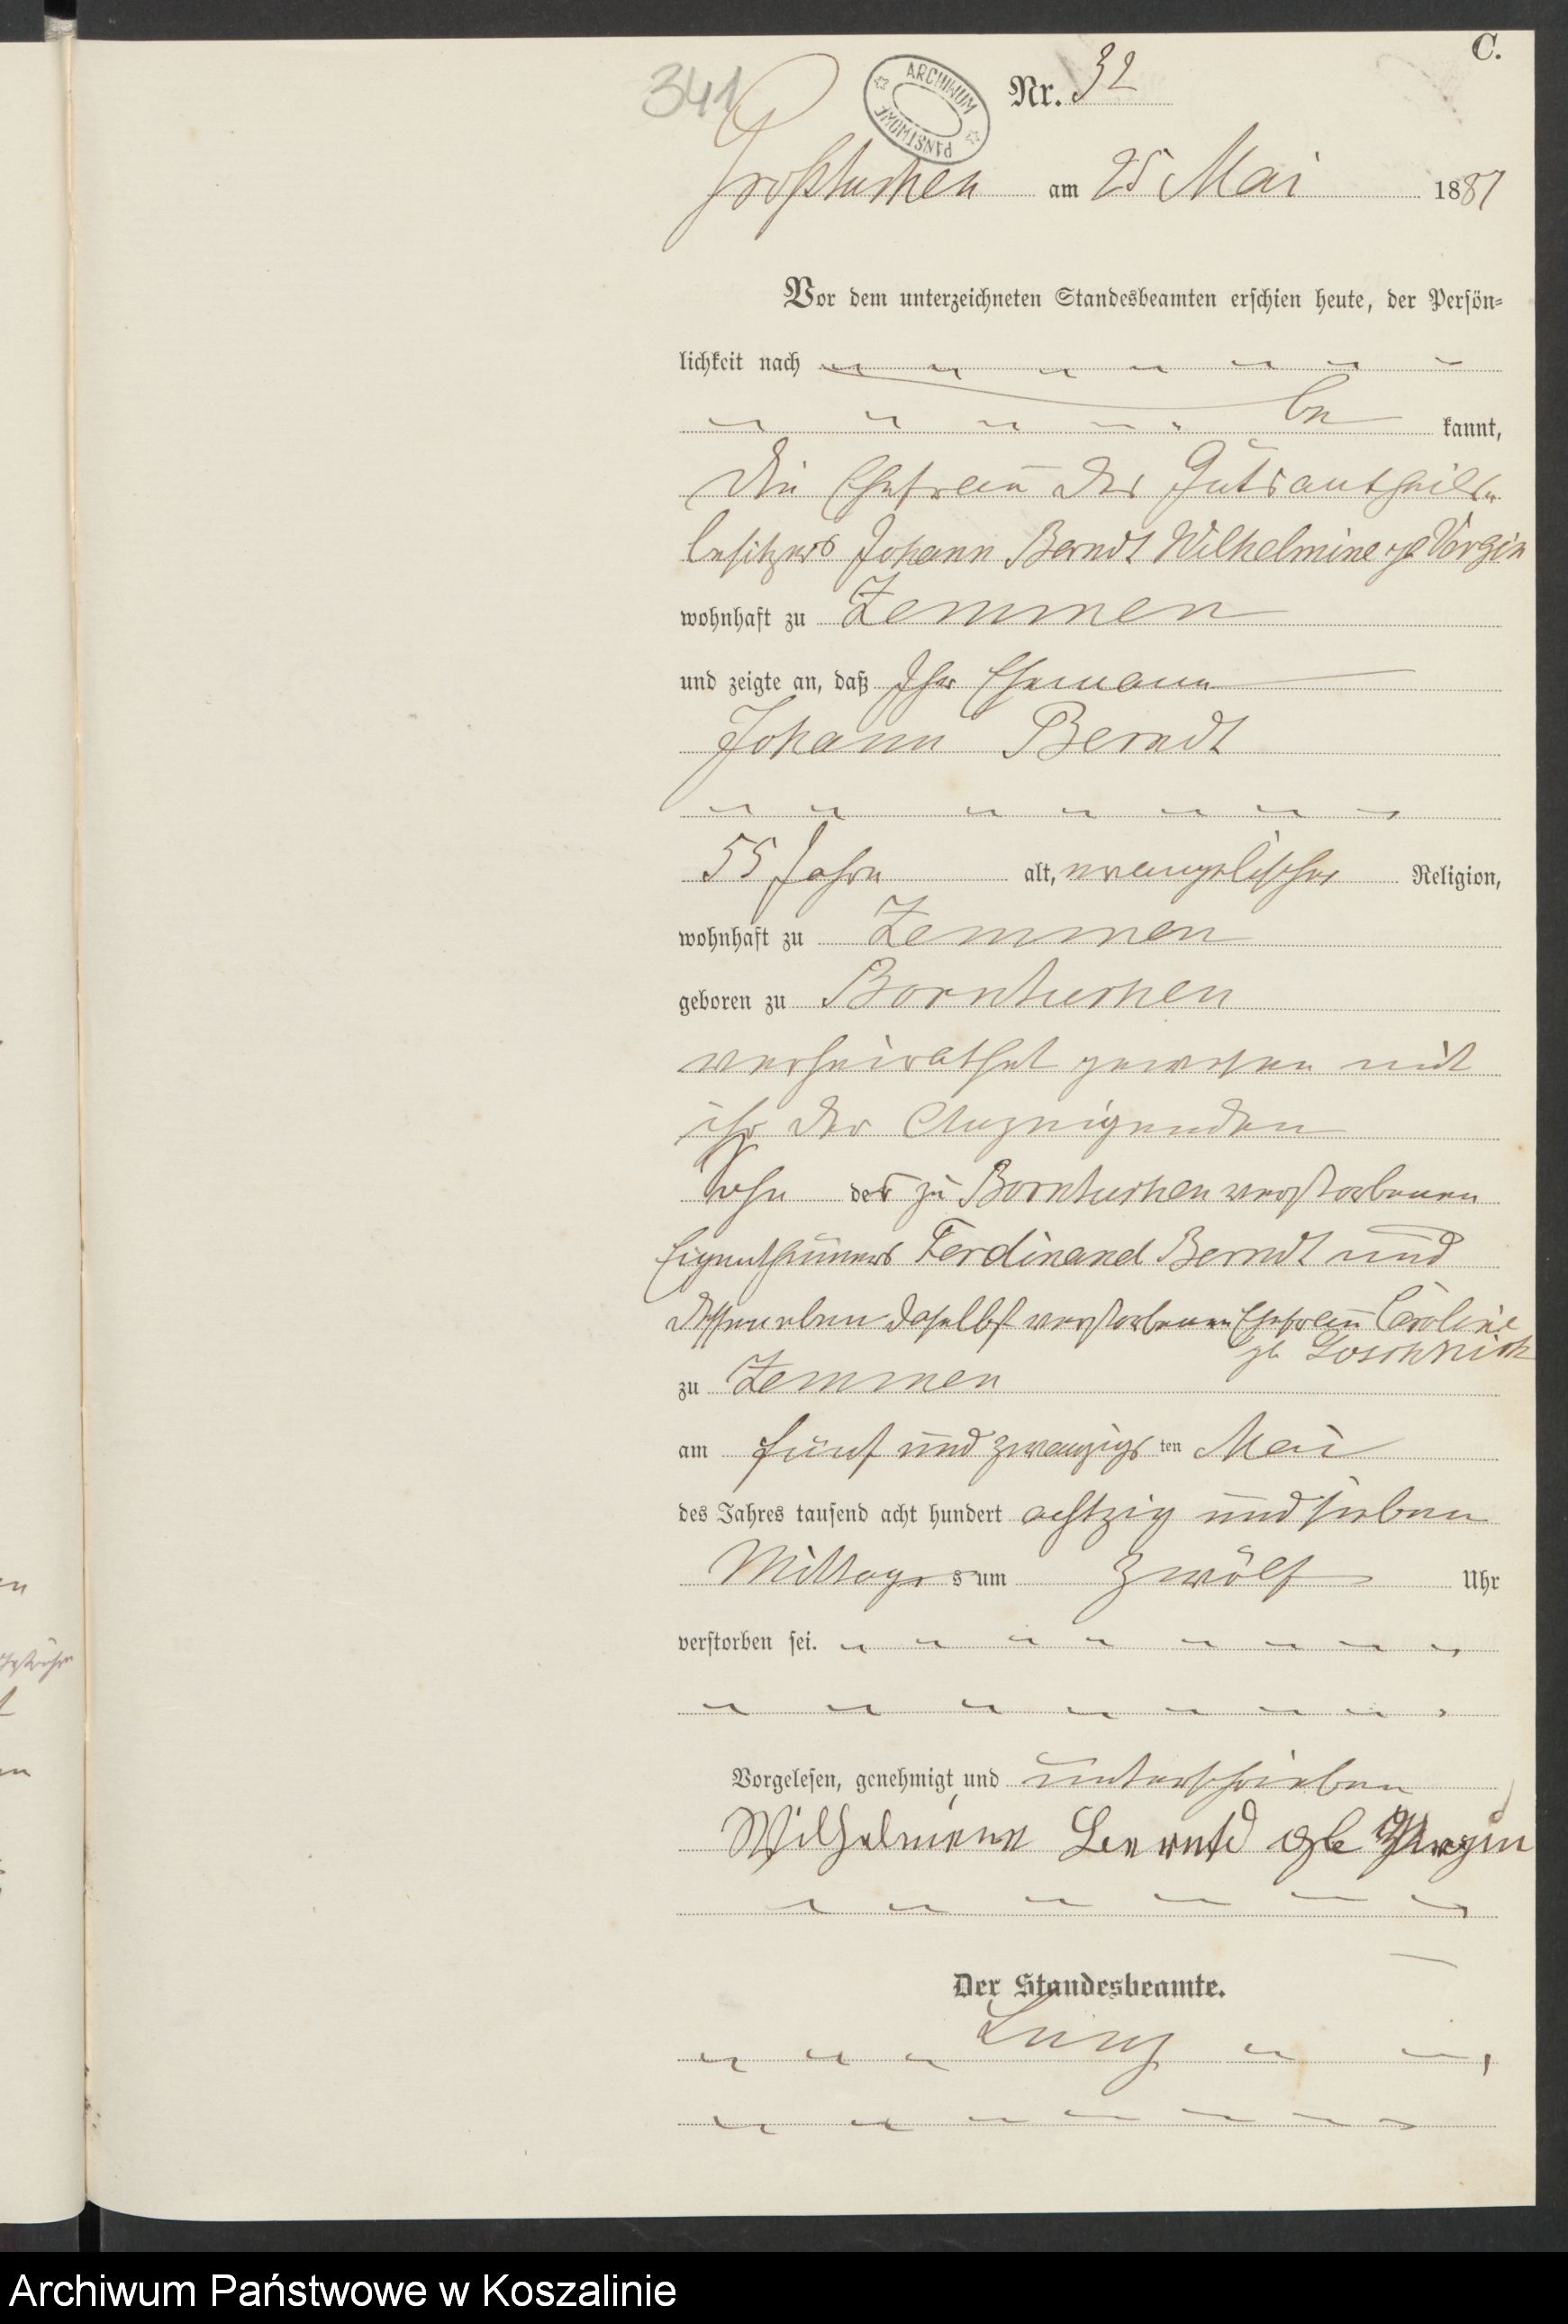 C.
341
ARCHIWUM PAŃSTWOWE
Nr. 32
Großtuchen am 25 Mai 1887
Vor dem unterzeichneten Standesbeamten erschien heute, der Persön-
lichkeit nach
be kannt,
die Ehefrau des Gutsantheils-
besitzers Johann Berndt Wilhelmine gb Vergin
wohnhaft zu Zemmen
und zeigte an, daß Ihr Ehemann
Johann Berndt
55 Jahre alt, evangelischer Religion,
wohnhaft zu Zemmen
geboren zu Borntuchen
verheirathet gewesen mit
ihr der Anzeigenden
Sohn des zu Borntuchen verstorbenen
Eigenthümers Ferdinand Berndt und
dessen eben daselbst verstorbenen Ehefrau Caroline
gb
zu Zemmen
am fünf und zwanzigs ten Mai
des Jahres tausend acht hundert achtzig und sieben
Mittags um zwölf Uhr
verstorben sei.
Vorgelesen, genehmigt und unterschrieben
Wilhelmine gb
Der Standesbeamte.
Archiwum Państwowe w Koszalinie